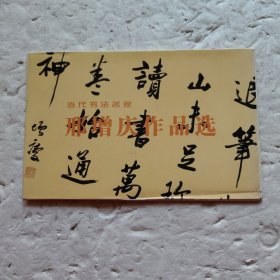 当代书法名家
邢增庆作品选
退筆
山未足珍
讀書萬
卷始通
神